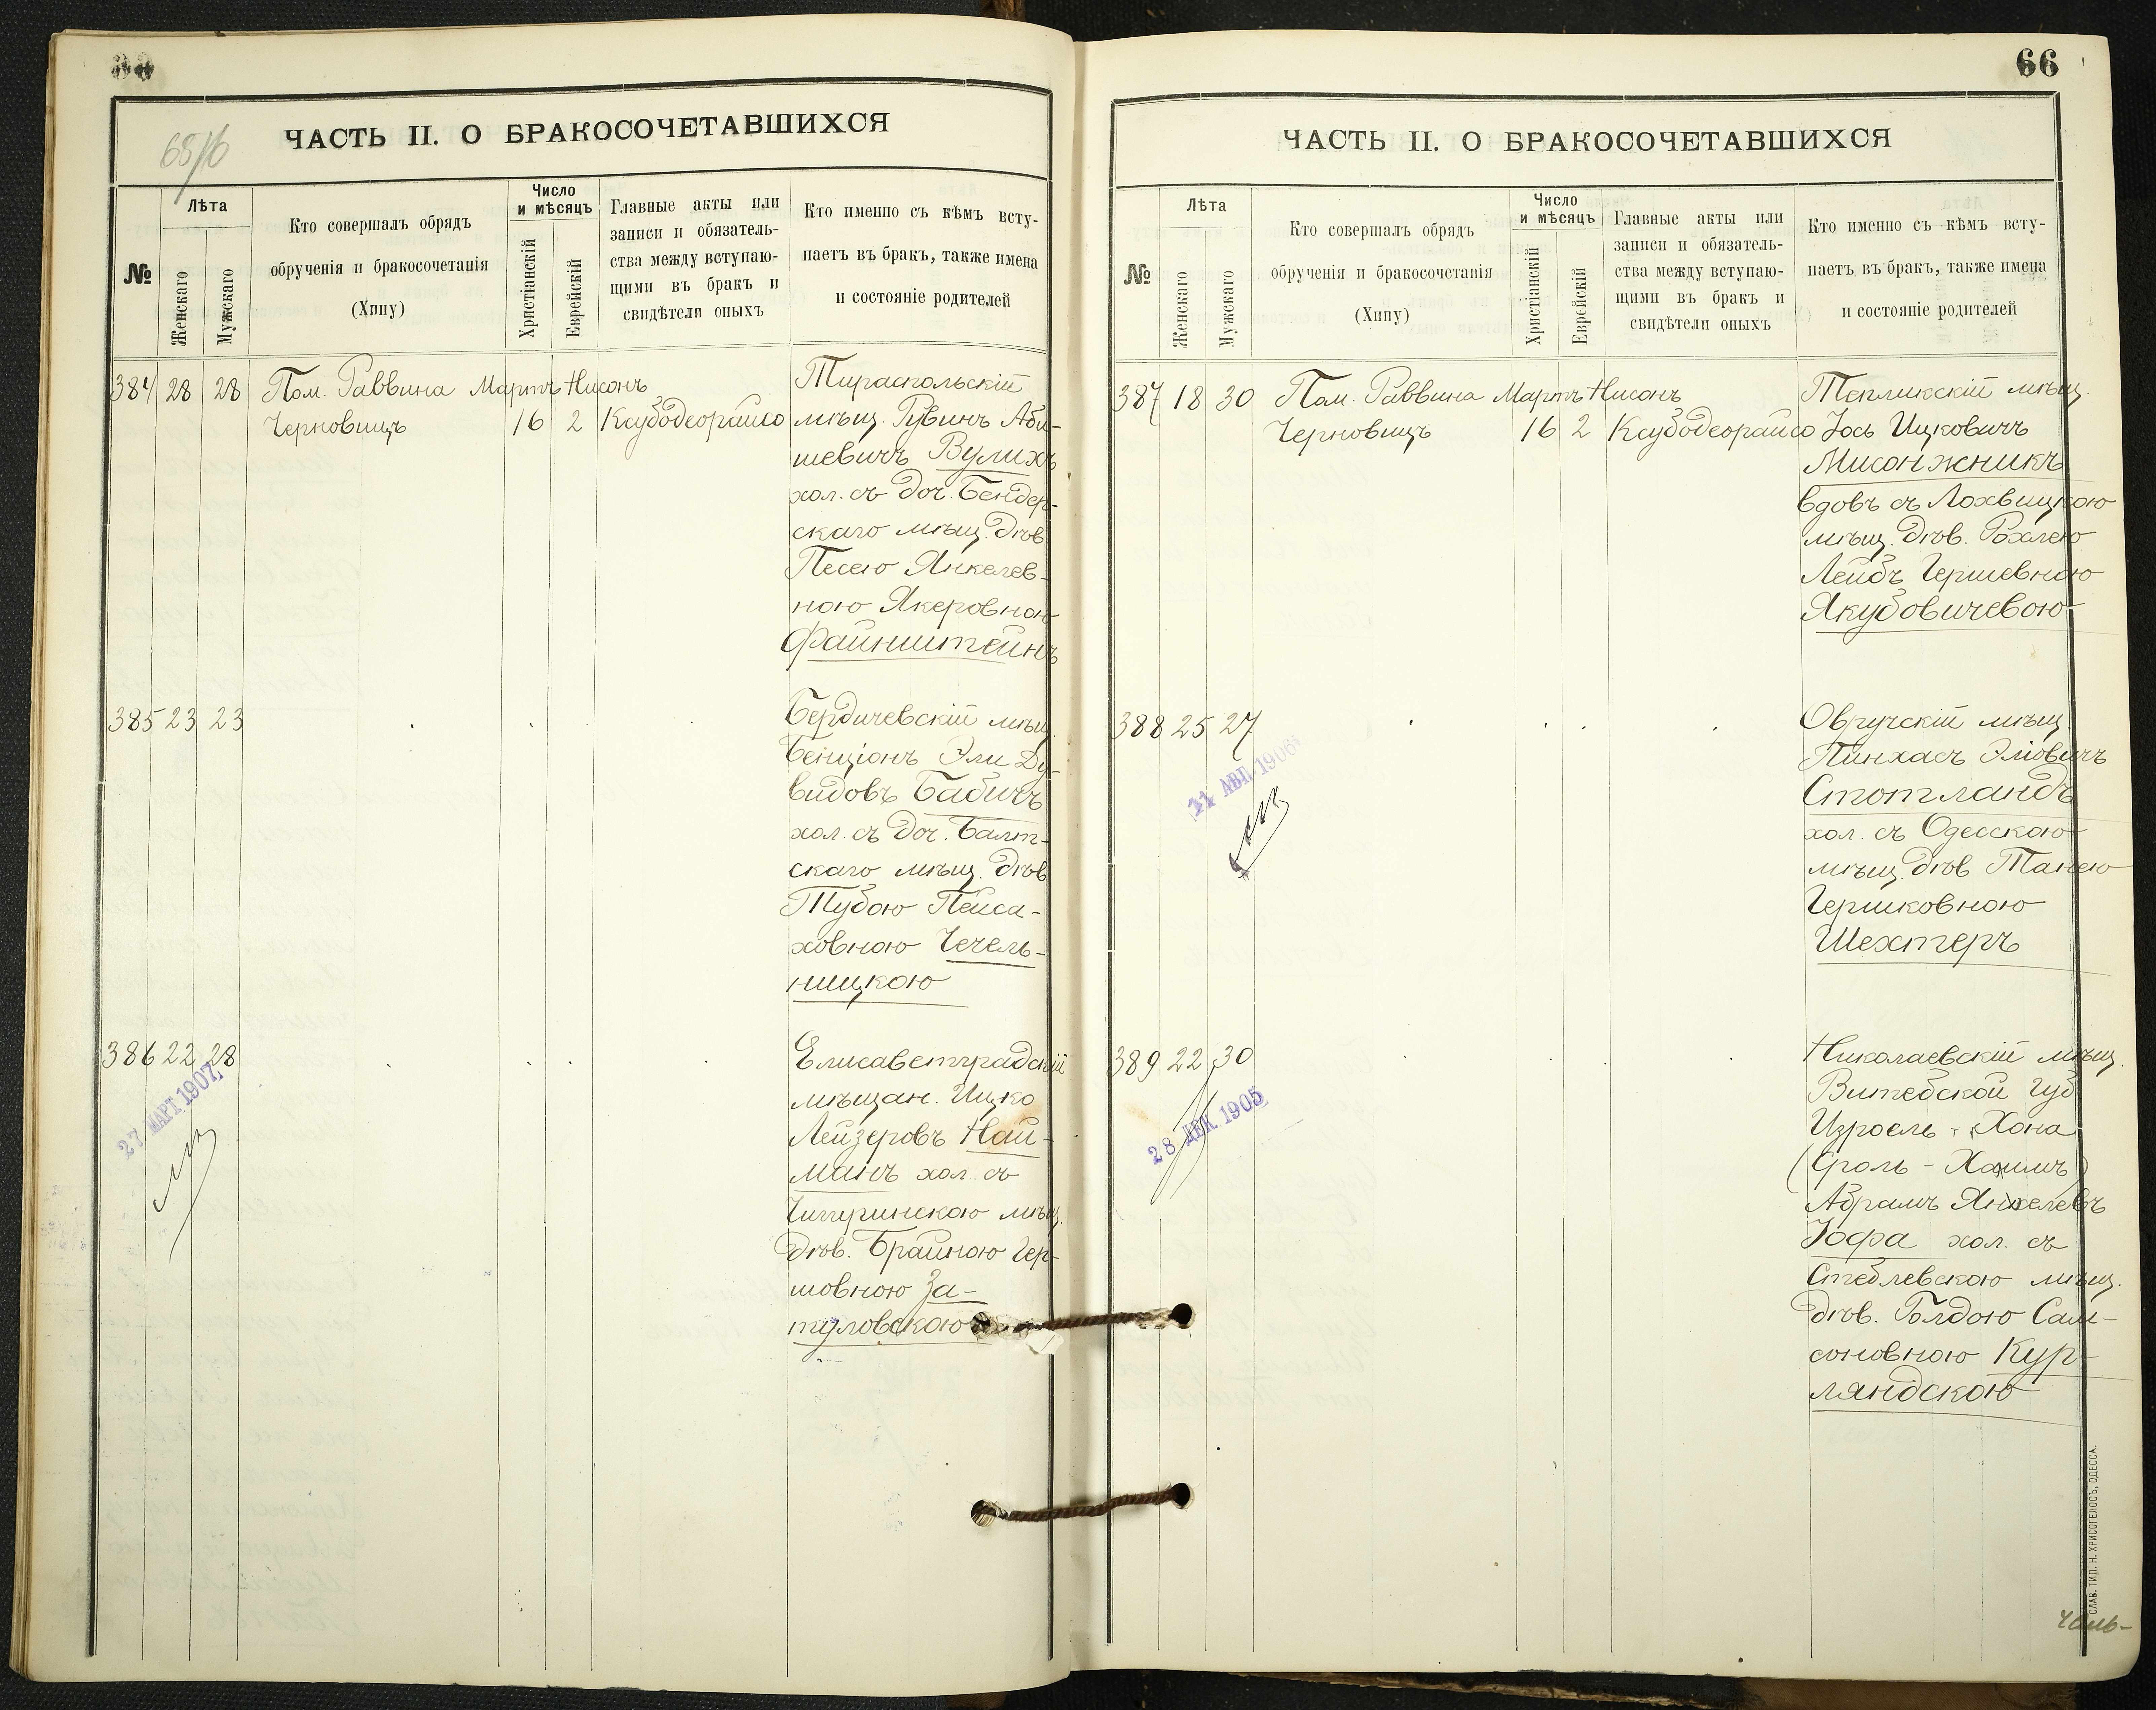 65/б
ЧАСТЬ II. О БРАКОСОЧЕТАВШИХСЯ
№
Лѣта
Женскаго
Мужскаго
Кто совершалъ обрядъ
обрученія и бракосочетанія
(Хипу)
Число
и мѣсяцъ
Христіанскій
Еврейскій
Главные акты или
записи и обязатель-
ства между вступаю-
щими въ бракъ и
свидѣтели оныхъ
Кто именно съ кѣмъ всту-
паетъ въ бракъ, также имена
и состояніе родителей
384 28 28 Пом. Раввина Мартъ Нисонъ
Черновицъ 16 2 Ксубодеорайсо
Тираспольскій
мѣщ. Рувинъ Аби-
шевичъ Вулихъ
хол. съ доч. Бендер-
скаго мѣщ. дѣв
Песею Янкелев-
ною Якеровною
Файнштейнъ
385 23 23
Бердичевскій мѣщ.
Бенціонъ Эли Ду-
видовъ Бабичъ
хол. съ доч. Балт-
скаго мѣщ. дѣв
Тубою Пейса-
ховною Чечель-
ницкою
386 22 28
27 МАРТ. 1907
Елисаветградскій
мѣщан. Ицко
Лейзеровъ Най-
манъ хол. съ
Чигиринскою мѣщ.
дѣв. Брайною Гер-
шовною За-
туловскою
66
ЧАСТЬ II. О БРАКОСОЧЕТАВШИХСЯ
№
Лѣта
Женскаго
Мужскаго
Кто совершалъ обрядъ
обрученія и бракосочетанія
(Хипу)
Число
и мѣсяцъ
Христіанскій
Еврейскій
Главные акты или
записи и обязатель-
ства между вступаю-
щими въ бракъ и
свидѣтели оныхъ
Кто именно съ кѣмъ всту-
паетъ въ бракъ, также имена
и состояніе родителей
387 18 30 Пом. Раввина Мартъ Нисонъ
Черновицъ 16 2 Ксубодеорайсо
Тепликскій мѣщ.
Іось Ицковичъ
Мисонжникъ
вдовъ съ Лохвицкою
мѣщ. дѣв. Рохлею
Лейбъ Гершевною
Якубовичевою
388 25 27
11 АВГ. 1906
Овручскій мѣщ.
Пинхасъ Эліовичъ
Стотландъ
хол. съ Одесскою
мѣщ. дѣв Танею
Гершковною
Шехтеръ
389 22 30
28 ДЕК. 1905
Николаевскій мѣщ.
Витебской губ
Изроель - Хона
(Сроль - Хаимъ)
Абрамъ Янкелевъ
Іофа хол. съ
Стеблевскою мѣщ.
дѣв. Голдою Сам-
соновною Кур-
ляндскою
СЛАВ. ТИП. Н. ХРИСОГЕЛОСЪ, ОДЕССА.